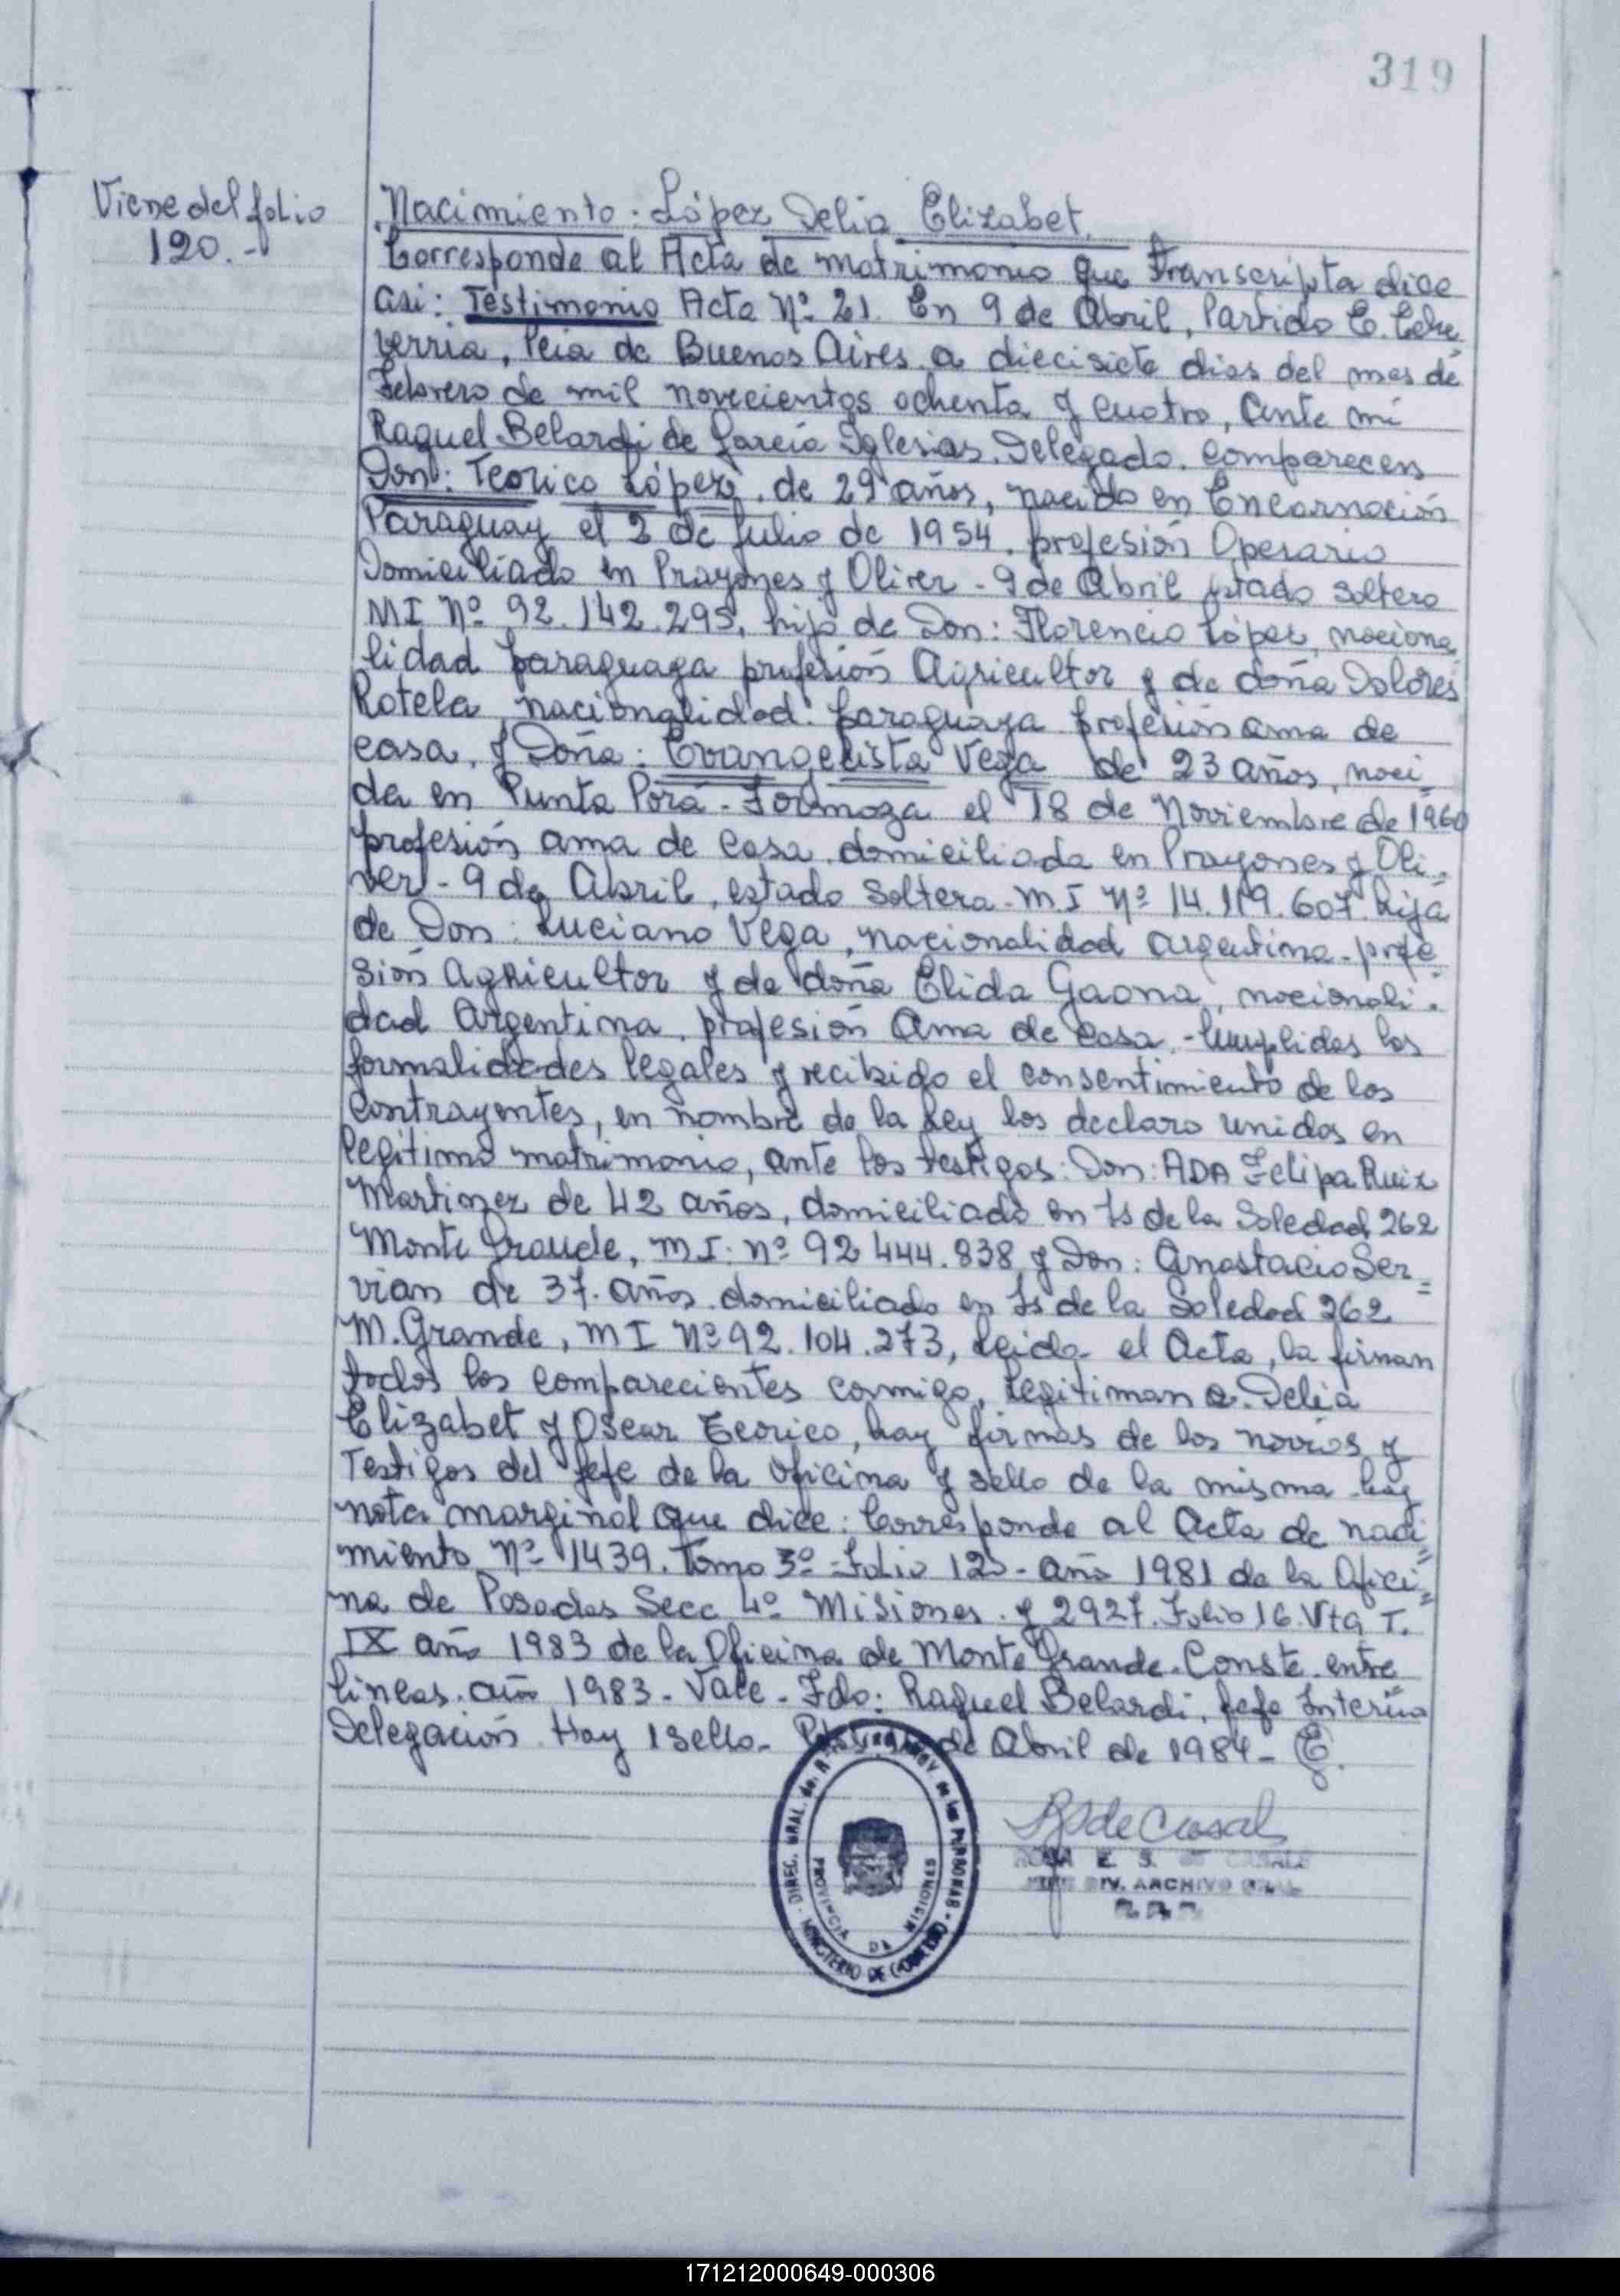 319
Viene del folio
120.-
Nacimiento: López Delia Elizabet.
Corresponde al Acta de matrimonio que transcripta dice
asi: Testimonio Acta Nº 21. En 9 de Abril, Partido E. Eche
verria, Pcia de Buenos Aires a diecisiete dias del mes de
Febrero de mil novecientos ochenta y cuatro, ante mi
Raquel Belardi de García Iglesias. Delegado. Comparecen
Don: Teorico López, de 29 años, nacido en Encarnación
Paraguay el 2 de Julio de 1954. profesión Operario
Domiciliado en Prayones y Oliver - 9 de Abril estado soltero
MI Nº 92.142.295, hijo de Don: Florencio López, naciona
lidad paraguaya profesión Agricultor y de doña Dolores
Rotela, nacionalidad: paraguaya profesión ama de
casa, y Doña: Evangelista Vega de 23 años, naci
da en Punta Porá - Formoza el 18 de Noviembre de 1960
profesión ama de casa, domiciliada en Prayones y Oli-
ver - 9 de Abril, estado soltera - M.I Nº 14.119.607 hija
de Don: Luciano Vega, nacionalidad argentina - profe
sión Agricultor y de doña Elida Gaona, nacionali-
dad Argentina, profesión Ama de casa. - Cumplidas las
formalidades legales y recibido el consentimiento de los
contrayentes, en nombre de la Ley los declaro unidos en
legítimo matrimonio, ante los testigos: Don: ADA Felipa Ruiz
Martinez de 42 años, domiciliado en Is de la Soledad 262
Monte Grande, M I: nº 92 444.838 y Don: Anastacio Ser=
vian de 37. años. domiciliado en Is de la Soledad 262
M. Grande, M I Nº 92.104.273, Leida el Acta, la firman
todos los comparecientes conmigo, Legitiman a. Delia
Elizabet y Oscar Teorico, hay firmas de los novios y
Testigos del jefe de la oficina y sello de la misma hay
nota marginal que dice: Corresponde al Acta de naci=
miento Nº 1439. Tomo 3º - Folio 120 - año 1981 de la Ofici=
na de Posadas Secc 4º Misiones. y 2927. Folio 16 Vta T.
IX año 1983 de la Oficina de Monte Grande. Conste. entre
lineas. año 1983 - Vale - Fdo: Raquel Belardi, Jefe Interina
Delegación. Hay 1 sello - de Abril de 1984 -
DIREC. GRAL. del de las PERSONAS - MINISTERIO DE GOBIERNO -
PROVINCIA DE MISIONES
R S de Casals
ROSA E. S. DE CASALS
JEFE DIV. ARCHIVO GRAL.
171212000649-000306